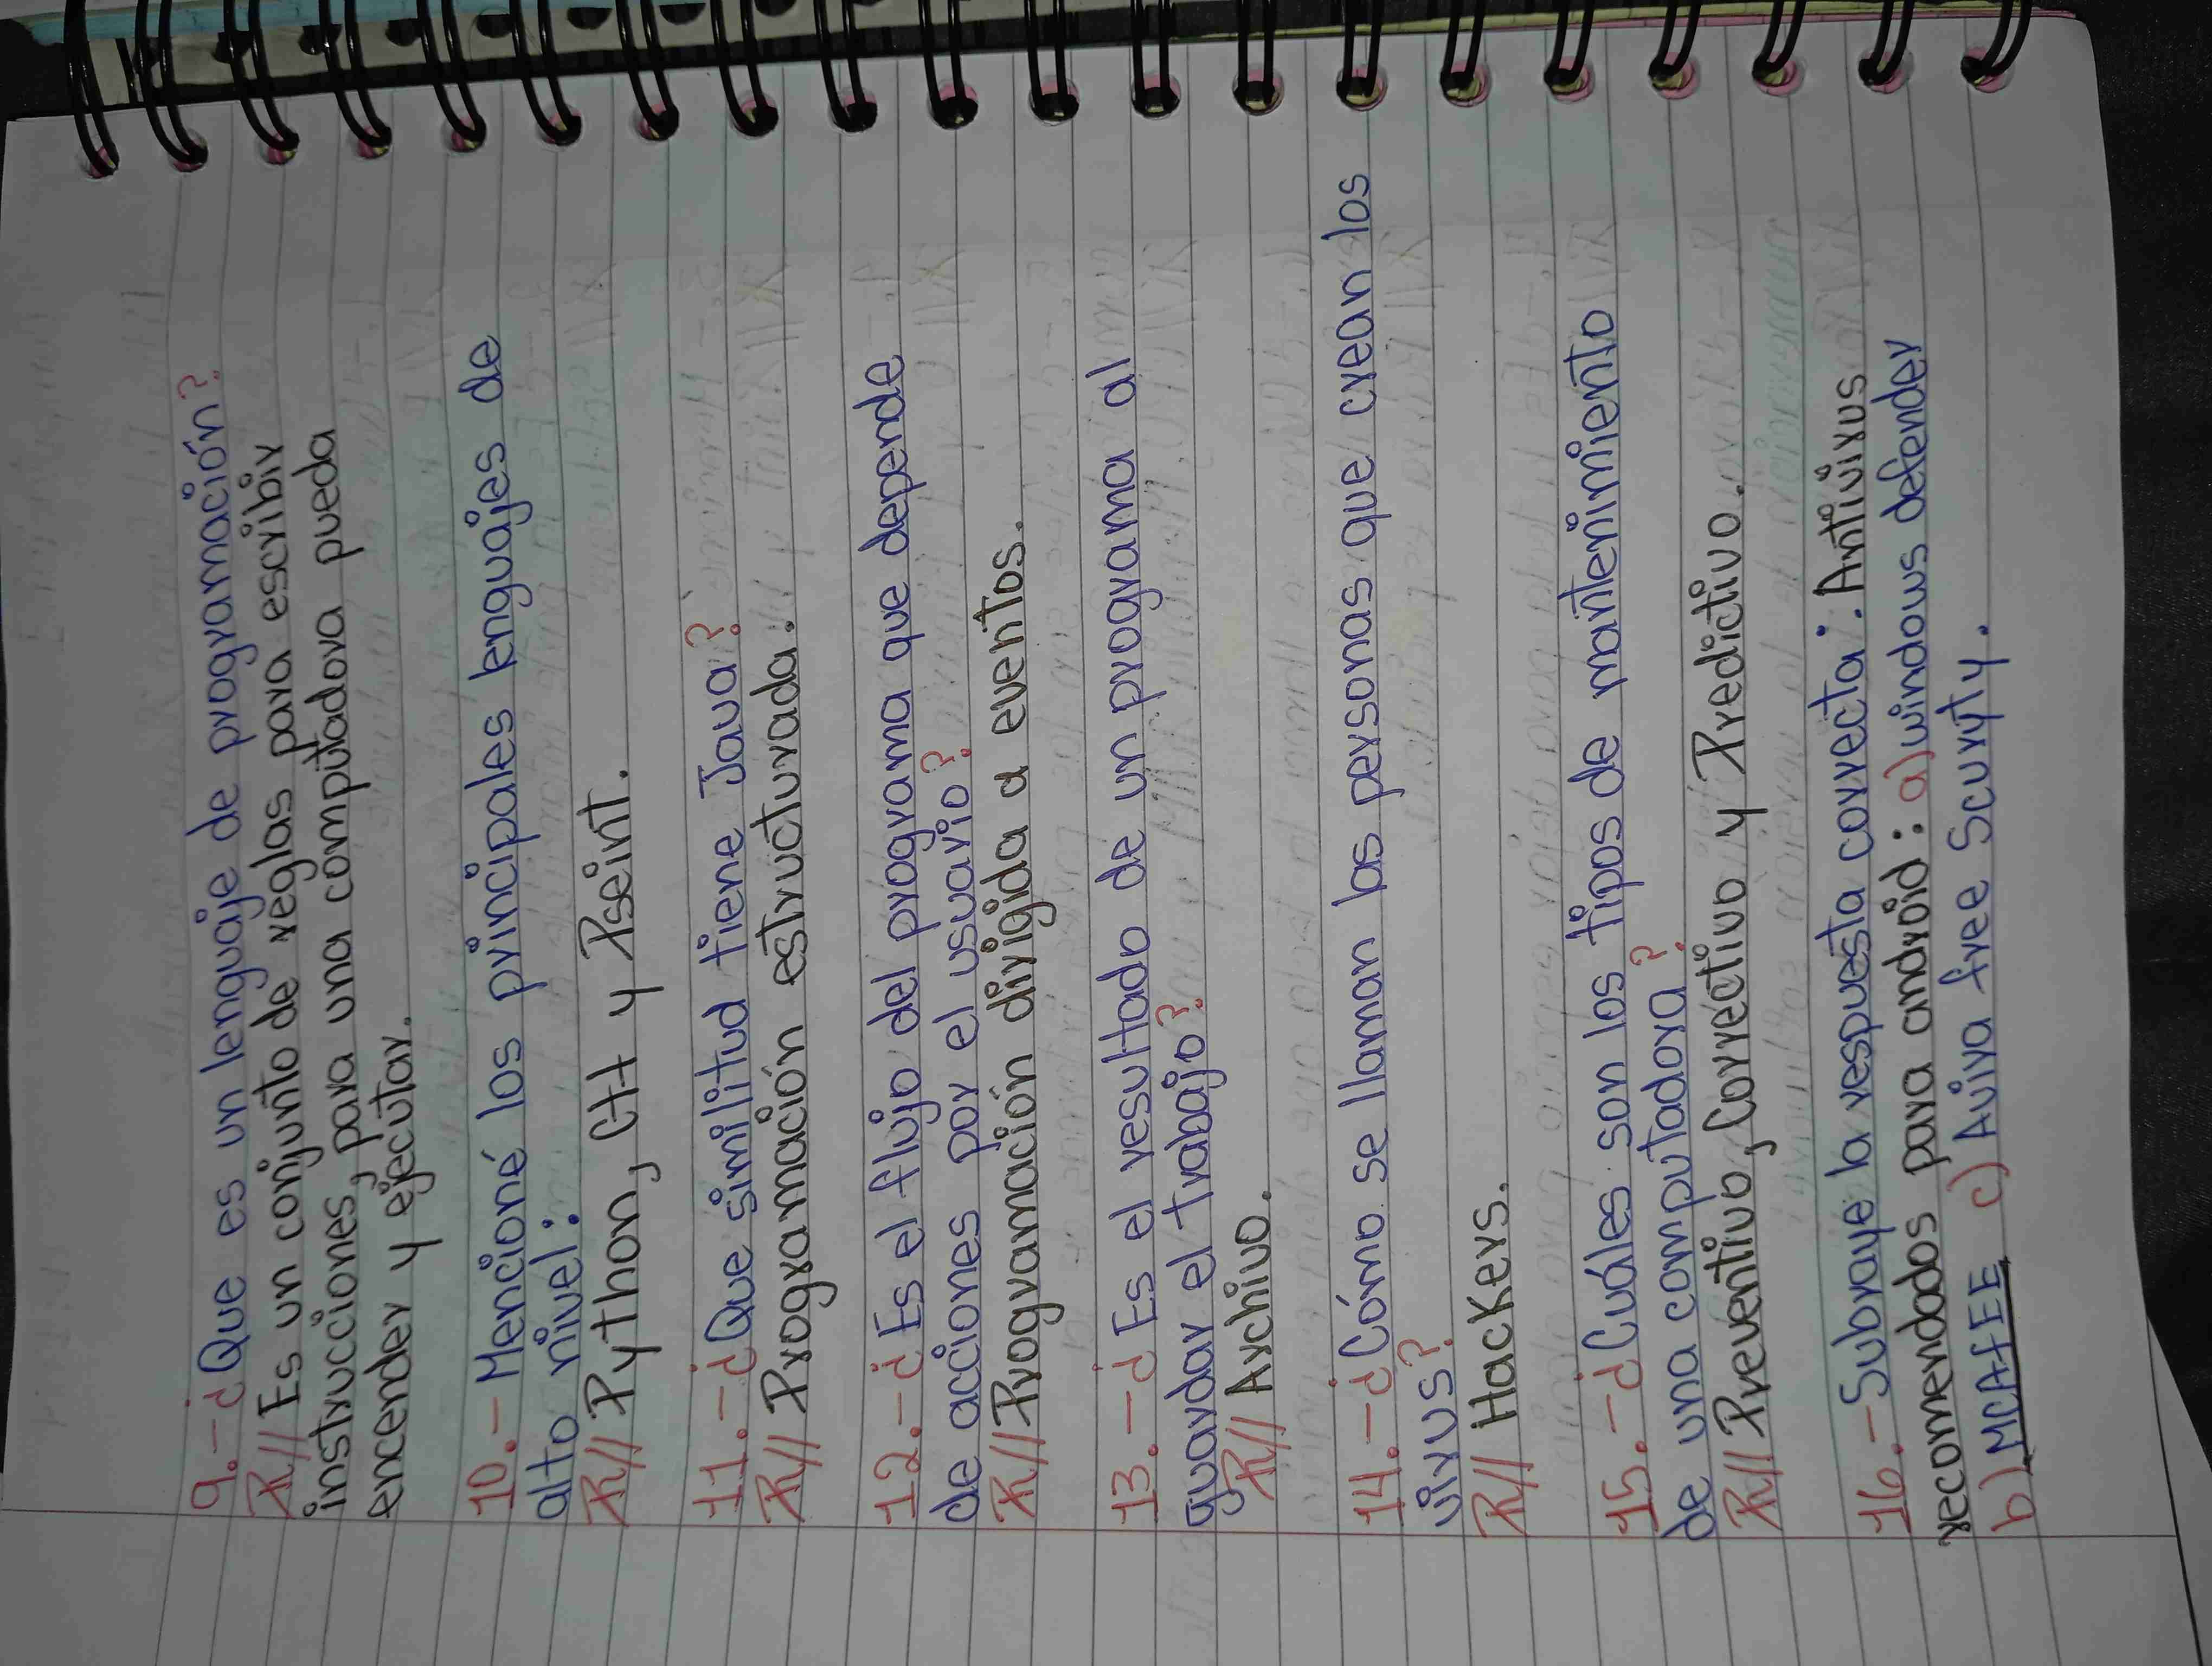 9.-¿Que es un lenguaje de programación?
R// Es un conjunto de reglas para escribir
instrucciones, para una computadora pueda
encender y ejecutar.
10.- Mencioné los principales lenguajes de
alto nivel:
R// Python, C++ y Pseint.
11.-¿Que similitud tiene Java?
R// Programación estructurada.
12.-¿Es el flujo del programa que depende
de acciones por el usuario?
R// Programación dirigida a eventos.
13.-¿Es el resultado de un programa al
guardar el trabajo?
R// Archivo.
14.-¿Cómo se llaman las personas que crean los
virus?
R// Hackers.
15.-¿Cuáles son los tipos de mantenimiento
de una computadora?
R// Preventivo, Correctivo y Predictivo.
16.-Subraye la respuesta correcta: Antivirus
recomendados para android: a) windows defender
b) MCAFEE c) Avira free Scurity.